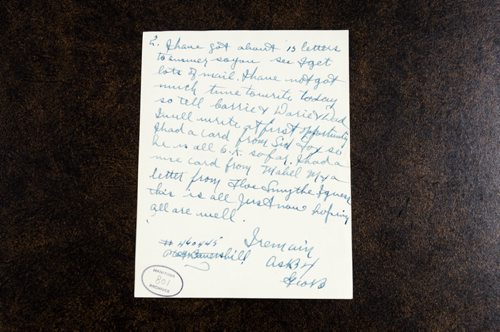 2. I have got about 15 letters
to answer so you see I get
lots of mail. I have not got
much time to write today
so tell Carrie & Dad
I will write at first opportunity
I had a card from Sid Fox so
he is all O.K. so far. I had a
nice card from Mabel M & a
letter from Flos Smythe I guess
this is all Just now hoping
all are well.
I remain
as Ever
Geo B
MANITOBA
801
ARCHIVES